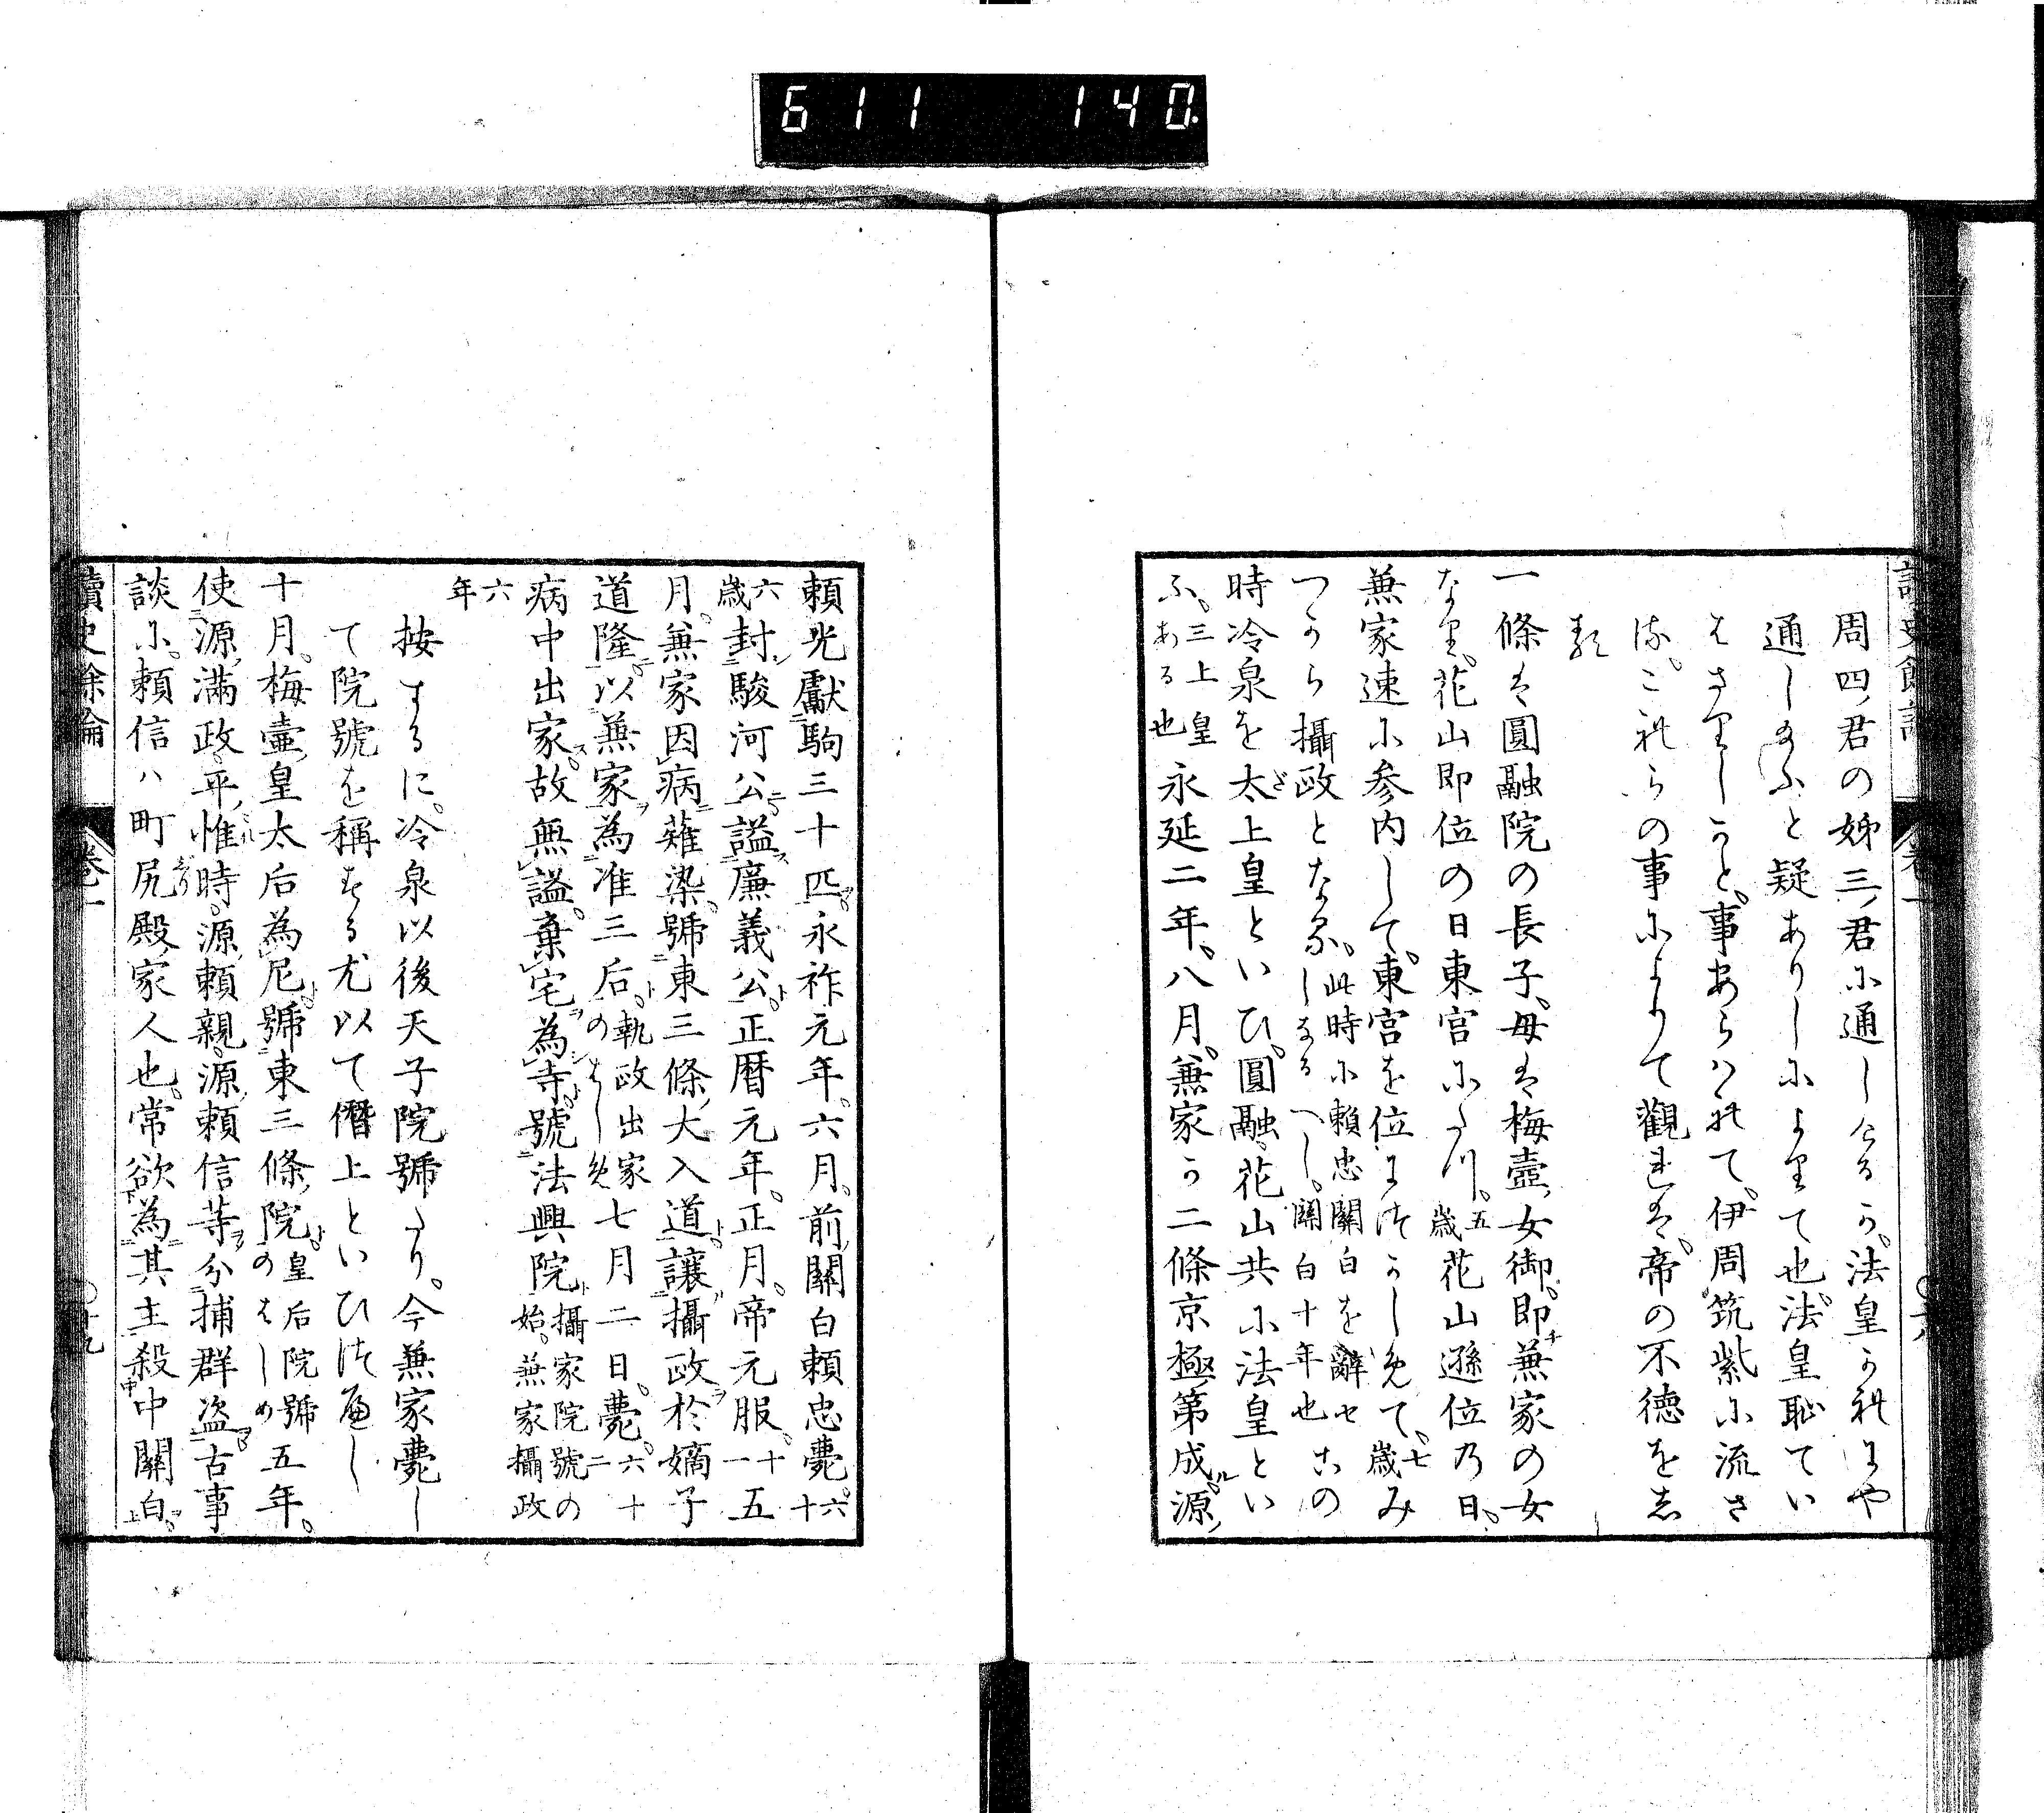 611 140.
周四君の姊三君に通しけるか。法皇かれにや
通し給ふと疑ありしによりて也。法皇恥てい
はさりしかと。事あらはれて。伊周筑紫に流さ
る。これらの事によりて觀れは。帝の不徳をし
る
一條は圓融院の長子。母は梅壺女御。即兼家の女
なり。花山即位の日東宮にたつ。五歳花山遜位の日。
兼家速に参内して。東宮を位につかしめて。七歳み
つから攝政となる。此時に頼忠關白を辭せしなるへし。關白十年也この
時冷泉を太上皇といひ。圓融花山共に法皇とい
ふ。三上皇ある也永延二年。八月。兼家か二條京極第成ル。源
頼光獻駒三十匹。永祚元年。六月。前關白頼忠薨。六十
六歳封駿河公謚廉義公。正暦元年。正月。帝元服。十一五
月。兼家因病薙染。號東三條大入道讓攝政於嫡子
道隆。以兼家為准三后。執政出家のはしめ七月二日。薨。六十二
病中出家。故無謚。棄宅為寺號法興院攝家院號の始。兼家攝政
六年
按するに。冷泉以後天子院號たり。今兼家薨し
て院號を稱する尤以て僭上といひつへし
十月。梅壷皇太后為尼。號東三條院。皇后院號のはしめ五年。
使源滿政。平惟時。源頼親。源頼信等分捕群盗古事
談に。頼信ハ町尻殿家人也。常欲為其主殺中關白。
讀史餘論 卷一 〇十九